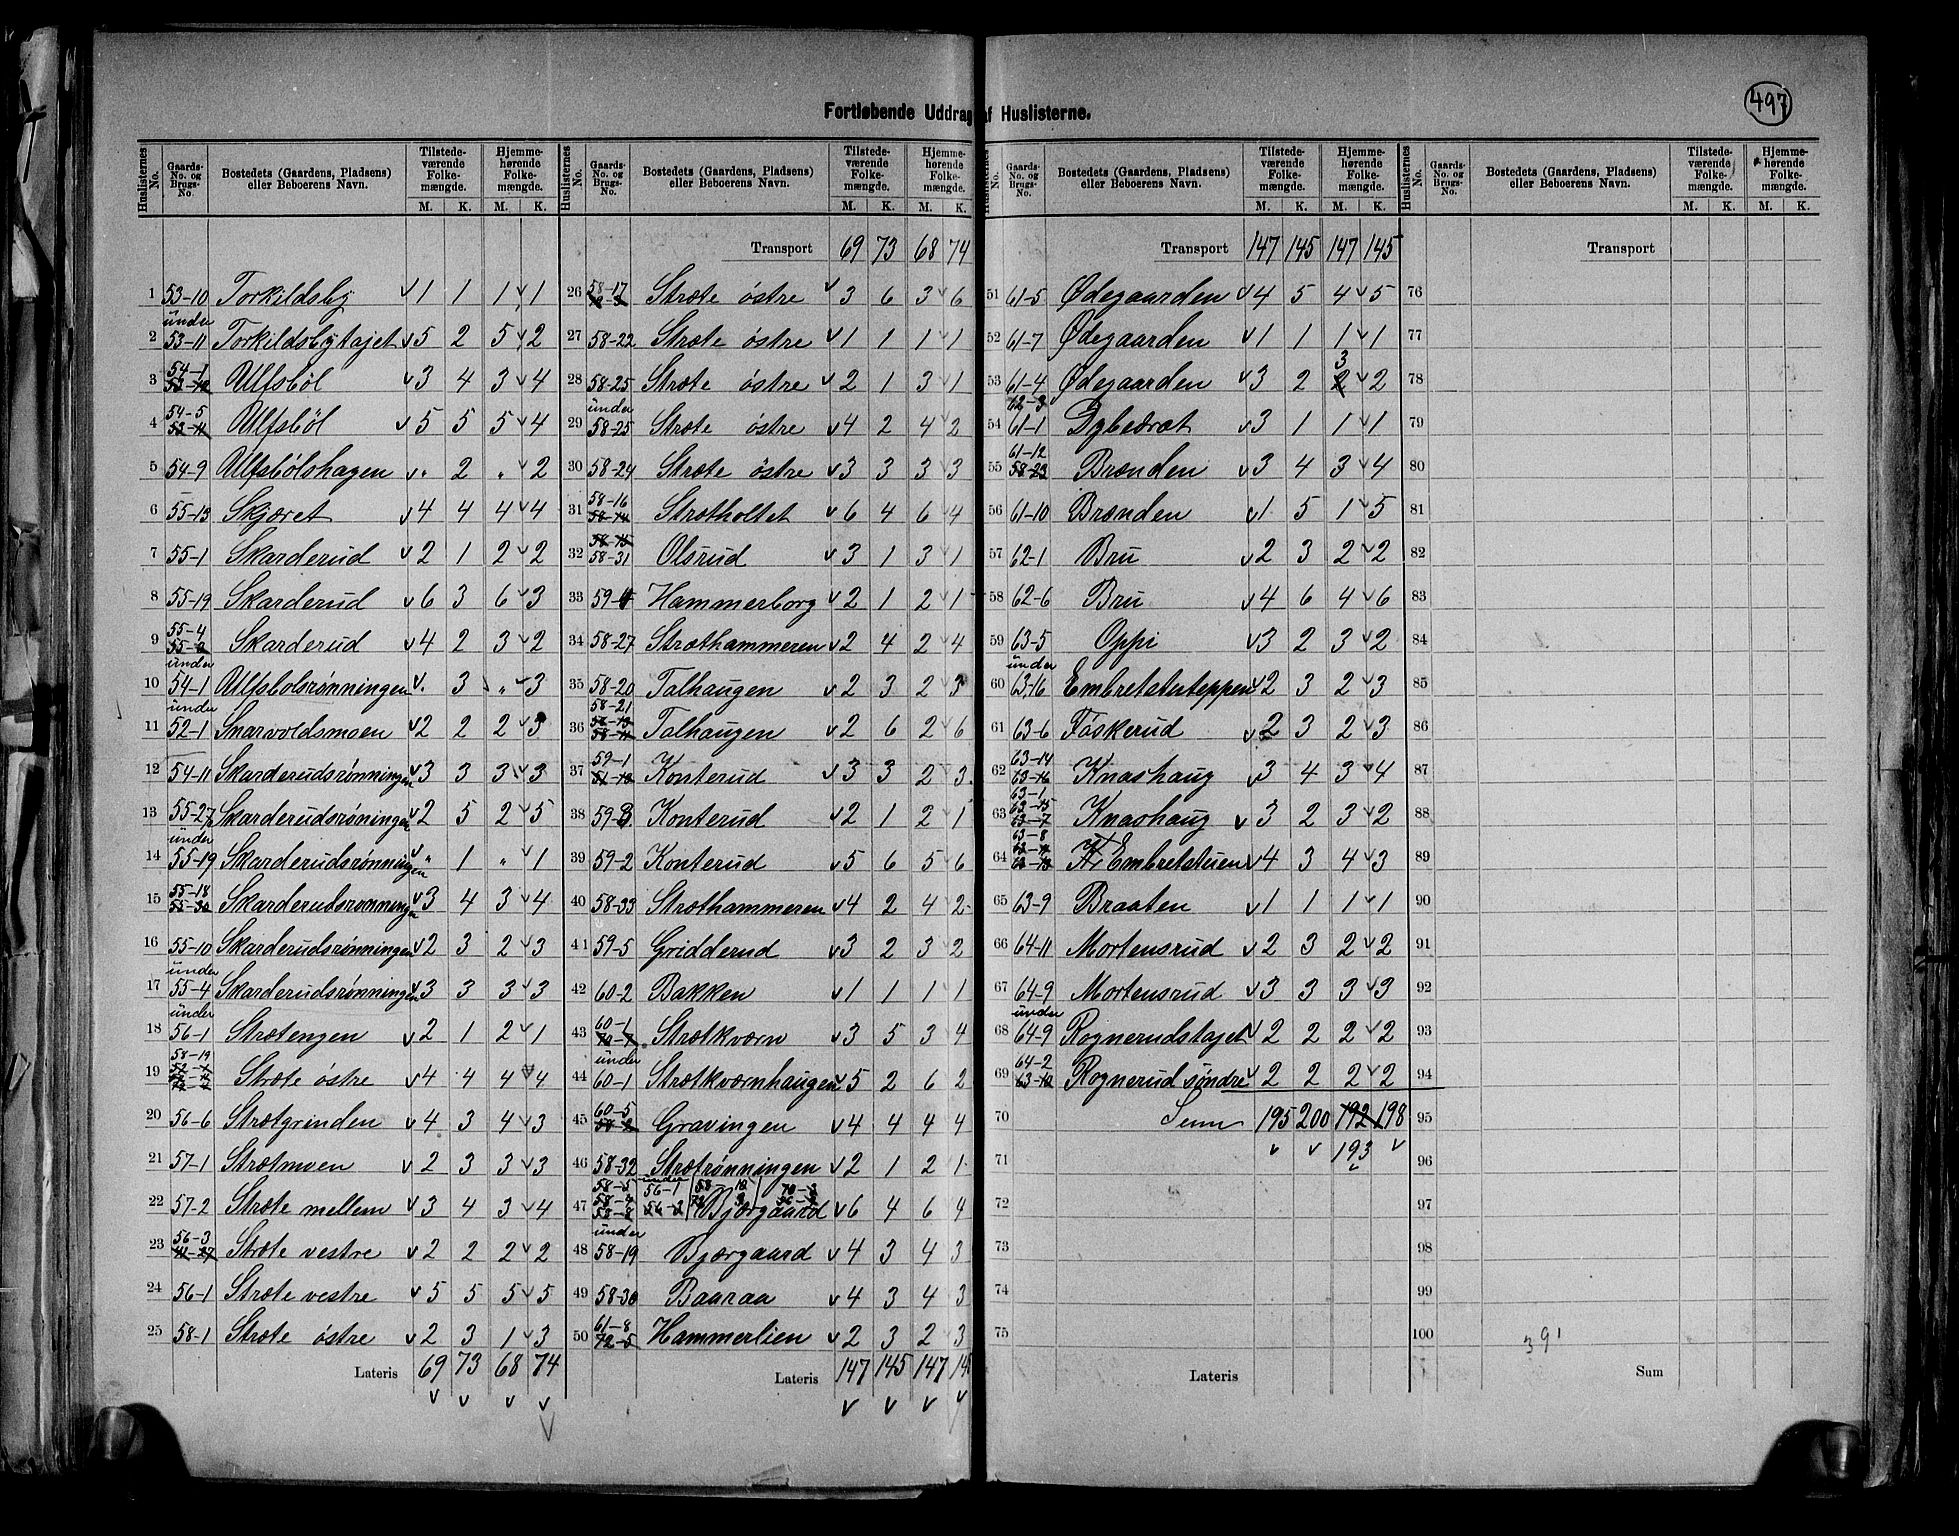 497
Fortløbende Uddrag af Huslisterne.
Huslisternes No. Gaards-No. og Brugs-No. Bostedets (Gaardens, Pladsens) eller Beboerens Navn. Tilstedeværende Folkemængde. M. K. Hjemmehørende Folkemængde. M. K.
1 53-10 Torkildsby v 1 1 1 v 1
2 under 53-11 Torkildsbytajet v 5 2 5 v 2
3 54-1 Ulfsböl v 3 4 3 v 4
4 54-5 Ulfsböl v 5 5 5 v 4
5 54-9 Ulfsbölshagen v " 2 " v 2
6 55-13 Skjæret v 4 4 4 v 4
7 55-1 Skarderud v 2 1 2 v 2
8 55-19 Skarderud v 6 3 6 v 3
9 55-4 Skarderud v 4 2 3 v 2
10 under 54-1 Ulfsbolsrønningen v " 3 " v 3
11 under 52-1 Snarvoldsmoen v 2 2 2 v 3
12 54-11 Skarderudsrönningen v 3 3 3 v 3
13 55-27 Skarderudsröningen v 2 5 2 v 5
14 under 55-19 Skarderudsrønningen v " 1 " v 1
15 55-18 Skarderudsrønningen v 3 4 3 v 4
16 55-10 Skarderudsrønningen v 2 3 2 v 3
17 under 55-4 Skarderudsrønningen v 3 3 3 v 3
18 under 56-1 Strætengen v 2 1 2 v 1
19 58-19 Stræte östre v 4 4 4 v 4
20 56-6 Strætgrinden v 4 3 4 v 3
21 57-1 Strætmoen v 2 3 3 v 3
22 57-2 Stræte mellem v 3 4 3 v 4
23 56-3 Stræte vestre v 2 2 2 v 2
24 56-1 Stræte vestre v 5 5 5 v 5
25 58-1 Stræte östre v 2 3 1 v 3
Lateris 69 73 68 74
v v v v
Transport 69 73 68 74
26 58-17 Stræte östre v 3 6 3 v 6
27 58-22 Stræte östre v 1 1 1 v 1
28 58-25 Stræte östre v 2 1 3 v 1
29 under 58-25 Stræte östre v 4 2 4 v 2
30 58-24 Stræte östre v 3 3 3 v 3
31 58-16 Strætholtet v 6 4 6 v 4
32 58-31 Olsrud v 3 1 3 v 1
33 59- Hammerborg v 2 1 2 v 1
34 58-27 Stræthammeren v 2 4 2 v 4
35 58-20 Talhaugen v 2 3 2 v 3
36 58-21 Talhaugen v 2 6 2 v 6
37 59-1 Konterud v 3 3 2 v 3
38 59-3 Konterud v 2 1 2 v 1
39 59-2 Konterud v 5 6 5 v 6
40 58-33 Stræthammeren v 4 2 4 v 2
41 59-5 Gridderud v 3 2 3 v 2
42 60-2 Bakken v 1 1 1 v 1
43 60-1 Strætkværn v 3 5 3 v 4
44 under 60-1 Strætkværnhaugen v 5 2 6 2
45 60-5 Gravingen v 4 4 4 v 4
46 58-32 Strætrönningen v 2 1 2 1
47 58-5 under 56-1 Bjørgaard v 6 4 6 v 4
48 under 58-19 Bjærgaard v 4 3 4 v 3
49 58-30 Baaraa v 4 3 4 v 3
50 61-8 Hammerlien v 2 3 2 v 3
Lateris 147 145 147 145
v v v v
Transport 147 145 147 145
51 61-5 Ødegaarden v 4 5 4 v 5
52 61-7 Ødegaarden v 1 1 1 v 1
53 61-4 Ødegaarden v 3 2 3 v 2
54 61-1 Dybedræt v 3 1 1 v 1
55 61-12 Brænden v 3 4 3 v 4
56 61-10 Brænden v 1 5 1 v 5
57 62-1 Bru v 2 3 2 v 2
58 62-6 Bru v 4 6 4 v 6
59 63-5 Oppi v 3 2 3 v 2
60 under 63-16 Embretsteteppen v 2 3 2 v 3
61 63-6 Föskerud v 2 3 2 v 3
62 63-14 Knashaug v 3 4 3 v 4
63 63-1 Knashaug v 3 2 3 v 2
64 63-8 Embretstuen v 4 3 4 v 3
65 63-9 Braaten v 1 1 1 v 1
66 64-11 Mortensrud v 2 3 2 v 2
67 64-9 Mortensrud v 3 3 3 v 3
68 under 64-9 Rognerudstajet v 2 2 2 v 2
69 64-2 Rognerud söndre v 2 2 2 v 2
70 Sum 195 200 192 198
71 v v 193 v
72
73
74
75
Lateris
Transport
76
77
78
79
80
81
82
83
84
85
86
87
88
89
90
91
92
93
94
95
96
97
98
99
100
391
Sum